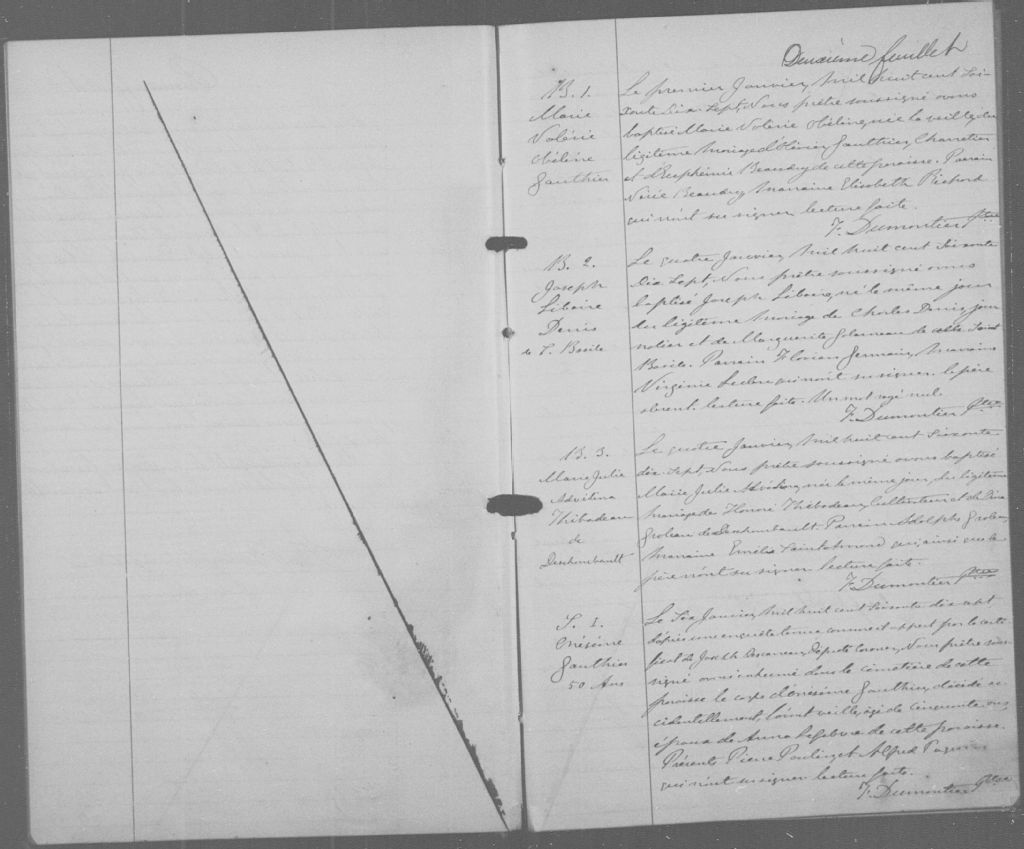 Deuxième feuillet
B. 1.
Marie
Valérie
Obéline
Gauthier
Le premier Janvier, Mil huit cent soi-
xante dix Sept, Nous prêtre soussigné avons
baptisé Marie Valérie Obéline, née la veille, du
légitime mariage d'Olivier Gauthier, Charretier
et d'Euphémie Beaudry de cette paroisse. Parrain
Beaudry, marraine Elisabeth Richard
qui n'ont su signer. lecture faite.
F. Dumontier Ptre
B. 2.
Joseph
Libaire
Denis
de S. Basile
Le quatre Janvier, Mil huit cent soixante
dix Sept, Nous prêtre soussigné avons
baptisé Joseph Libaire, né le même jour
du légitime mariage de Charles Denis, jour
nalier et de Marguerite de Saint
Basile. Parrain Florian Germain, Marraine
Virginie Leclerc qui n'ont su signer. le père
absent. lecture faite. Un mot rayé nul.
F. Dumontier Ptre
B. 3.
Marie Julie
Advilina
Thibodeau
de
Deschambault
Le quatre Janvier, Mil huit cent soixante
dix-Sept, Nous prêtre soussigné avons baptisé
Marie Julie née le même jour, du légitime
mariage de Honoré Thibodeau, Cultivateur et de
Groleau de Deschambault. Parrain Adolphe Groleau,
Marraine Emélie Saintamand qui, ainsi que le
père n'ont su signer. lecture faite.
F. Dumontier Ptre
S. 1.
Onésime
Gauthier
50 Ans
Le Six Janvier, Mil huit cent soixante dix sept
d'après une enquête tenue comme il appert par le certi-
ficat de Joseph Député Coroner, Nous prêtre sous-
signé avons inhumé dans le cimetière de cette
paroisse le corps d'Onésime Gauthier, décédé ac-
cidentellement, l'avant veille, âgé de cinquante ans,
époux de Anna Lefebvre de cette paroisse.
Présents Pierre Paulin, et Alfred Paquin
qui n'ont su signer lecture faite.
F. Dumontier Ptre